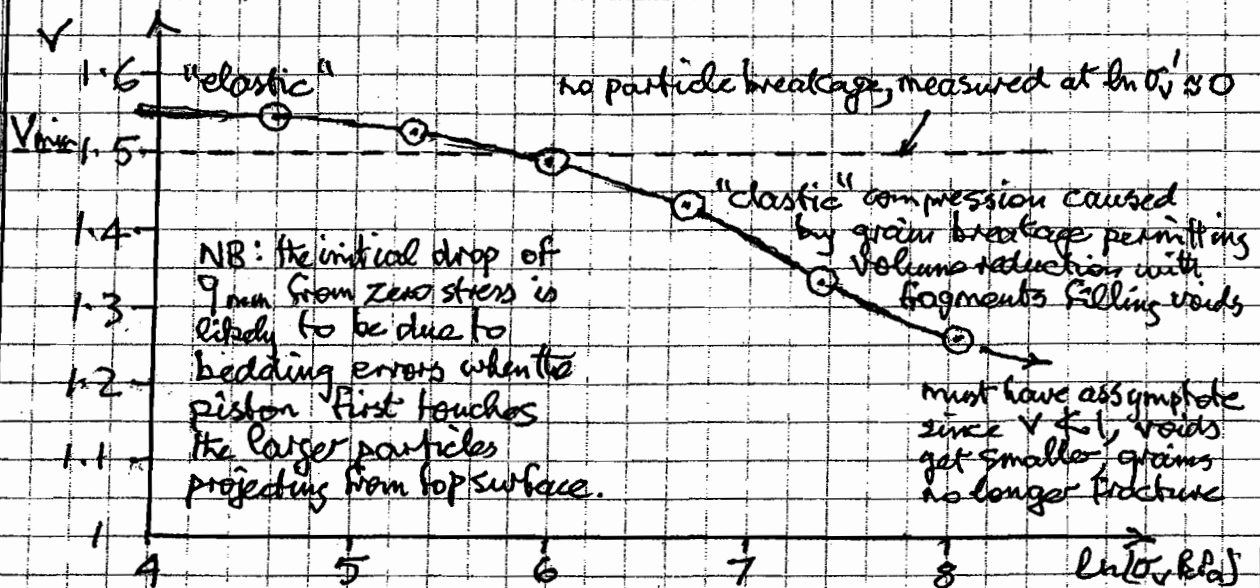 v
1.6
"elastic"
no particle breakage, measured at ln σv' ≈ 0
Vmin 1.5
"clastic" compression caused
by grain breakage permitting
volume reduction with
fragments filling voids
1.4
NB: the initial drop of
9mm from zero stress is
likely to be due to
bedding errors when the
piston first touches
the larger particles
projecting from top surface.
1.3
1.2
1.1
1
must have assymptote
since v ≮ 1, voids
get smaller, grains
no longer fracture
4 5 6 7 8 ln[σ, kPa]